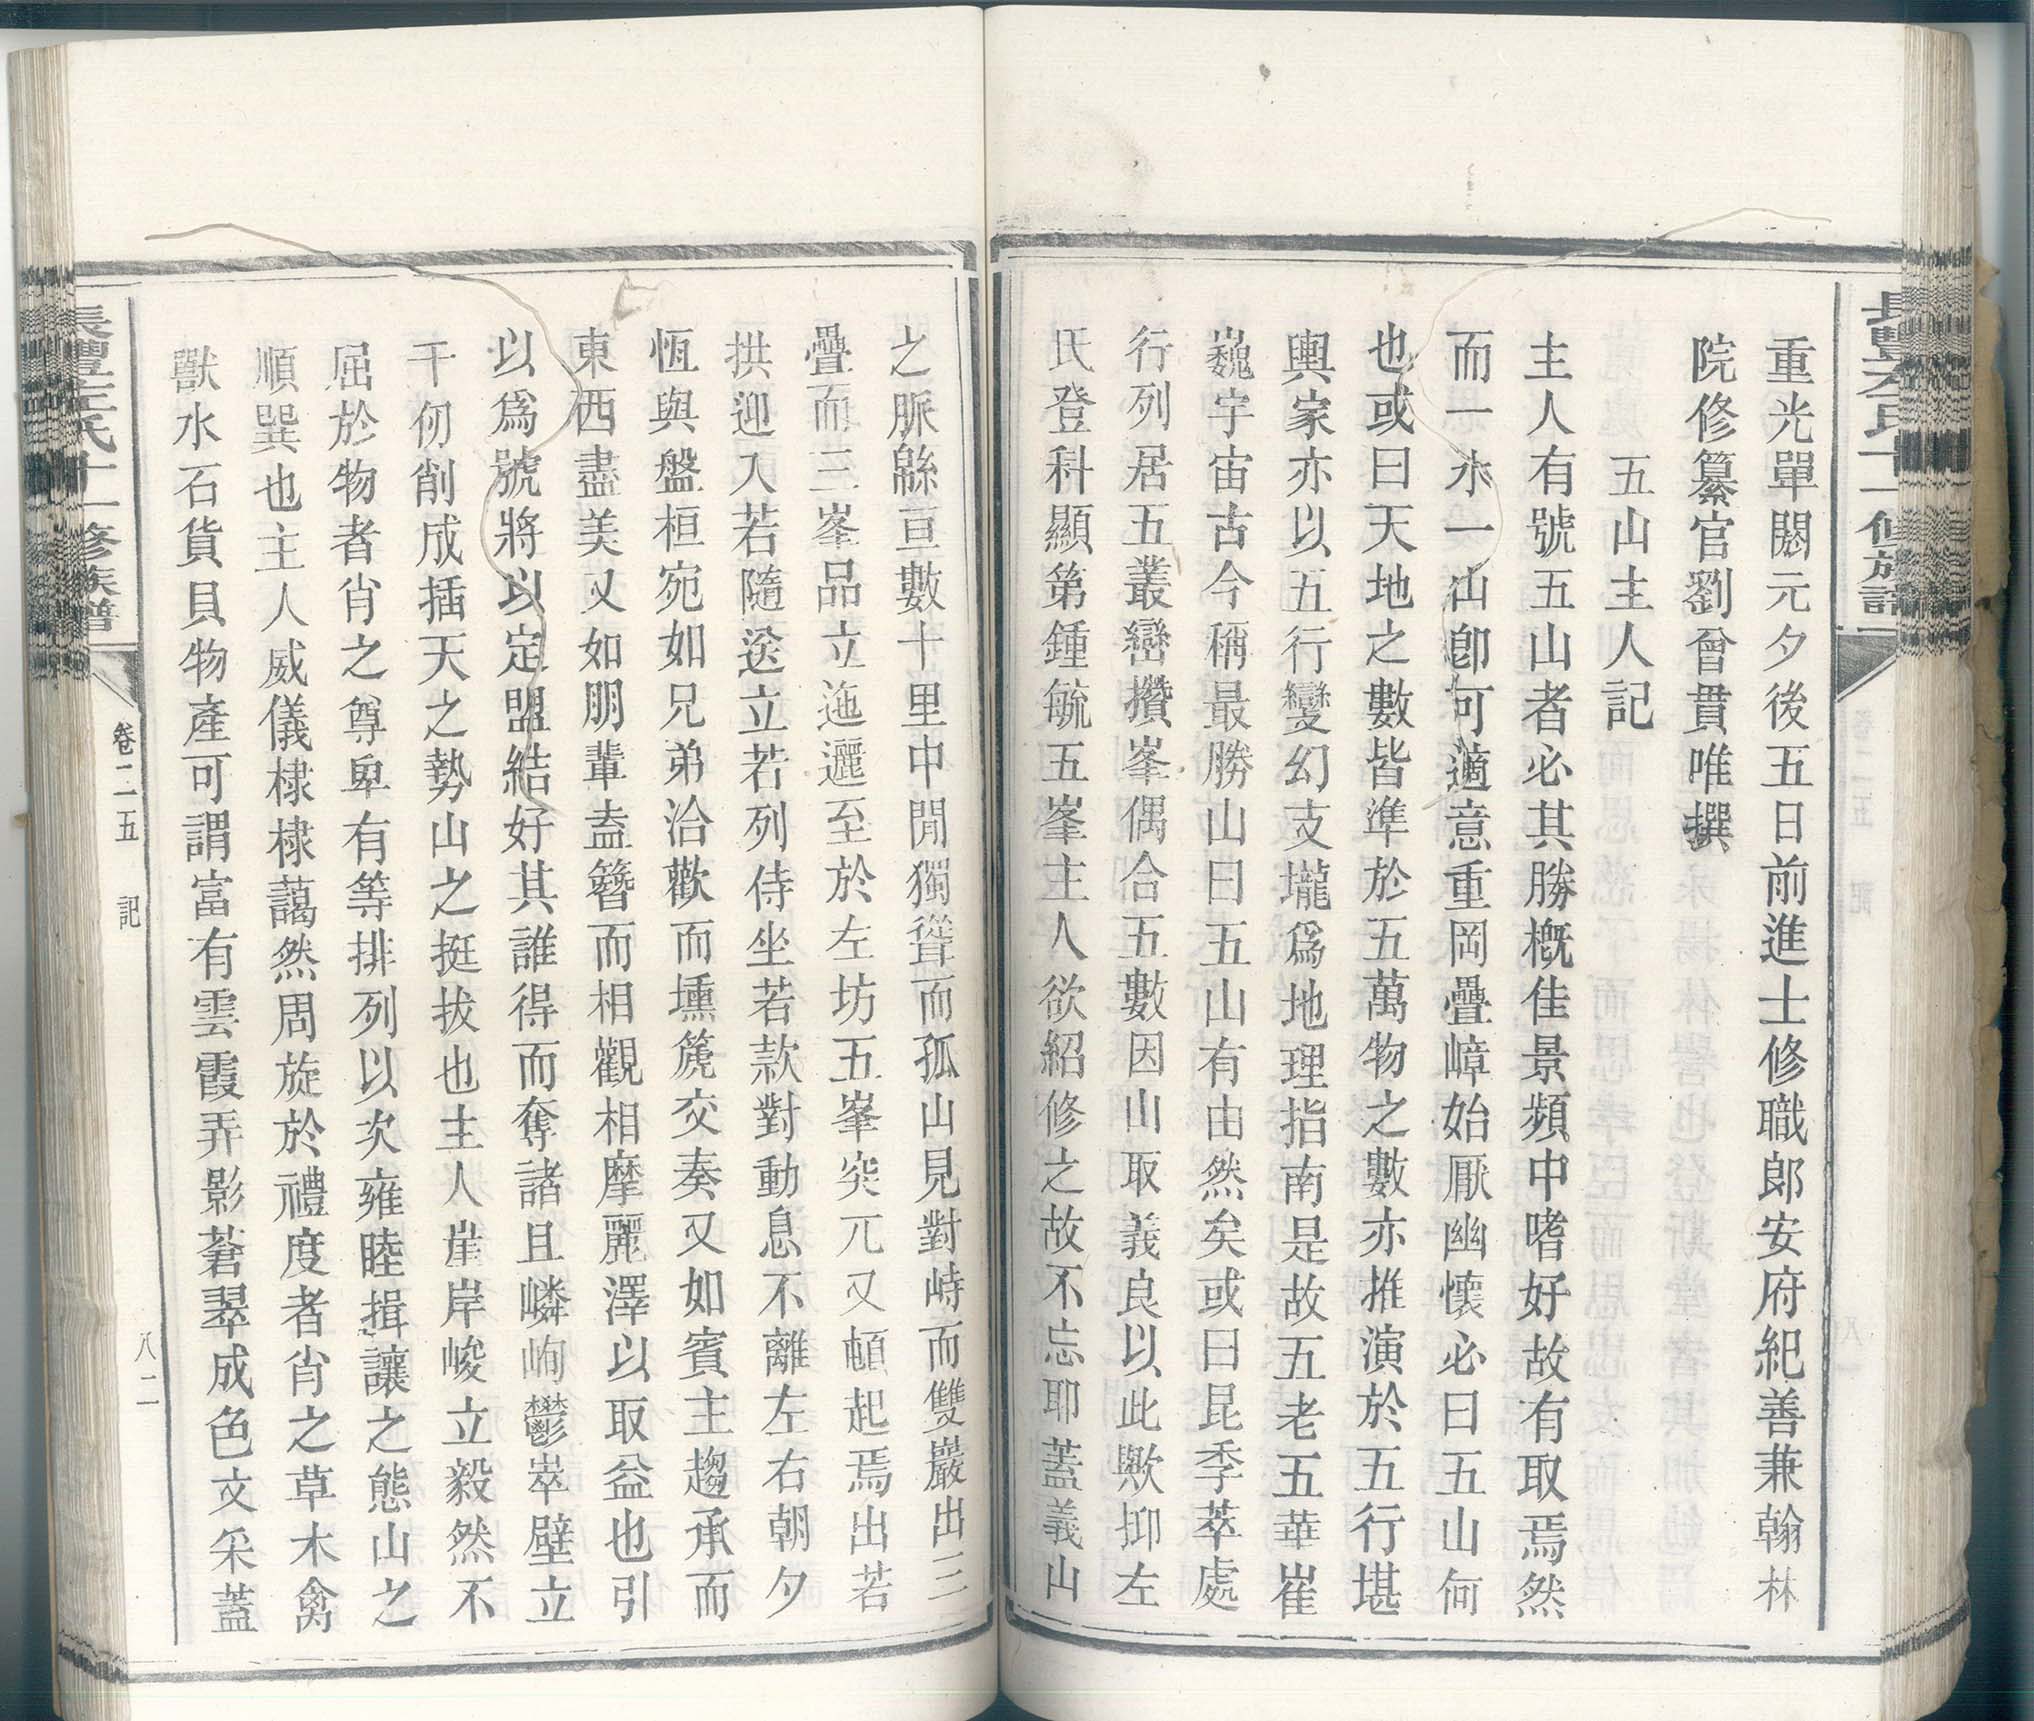 重光單閼元夕後五日前進士修職郎安府紀善兼翰林
院修纂官劉曾貫唯撰
五山主人記
主人有號五山者必其勝概佳景頻中嗜好故有取焉然
而一水一山卽可適意重岡疊嶂始厭幽懷必曰五山何
也或曰天地之數皆準於五萬物之數亦推演於五行堪
輿家亦以五行變幻支壠爲地理指南是故五老五華崔
巍宇宙古今稱最勝山曰五山有由然矣或曰昆季萃處
行列居五叢巒攢峯偶合五數因山取義良以此歟抑左
氏登科顯第鍾毓五峯主人欲紹修之故不忘耶蓋義山
之脈緜亘數十里中閒獨聳而孤山見對峙而雙巖出三
疊而三峯品立迤邐至於左坊五峯突兀又頓起焉出若
拱迎入若隨送立若列侍坐若款對動息不離左右朝夕
恆與盤桓宛如兄弟洽歡而壎篪交奏又如賓主趨承而
東西盡美又如朋輩盍簪而相觀相摩麗澤以取益也引
以爲號將以定盟結好其誰得而奪諸且嶙峋鬱崒壁立
千仞削成插天之勢山之挺拔也主人崖岸峻立毅然不
屈於物者肖之尊卑有等排列以次雍睦揖讓之態山之
順巽也主人威儀棣棣藹然周旋於禮度者肖之草木禽
獸水石貨貝物產可謂富有雲霞弄影蒼翠成色文采蓋
卷二五 記
八二